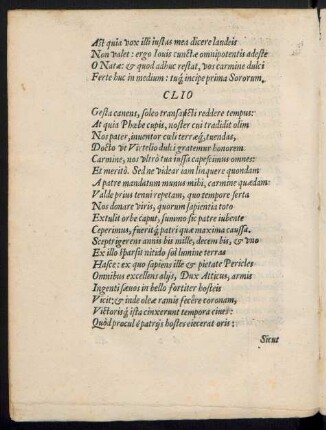 Ast quia vox illi iustas mea dicere laudeis
Non valet: ergo Iouis cunctæ omnipotentis adeste
O Natæ: & quod adhuc restat, vos carmine dulci
Ferte huc in medium: tuq́ incipe prima Sororum.
CLIO
Gesta canens, soleo transacti reddere tempus:
At quia Phœbe cupis, noster cui tradidit olim
Nos pater, inuentor culi terræq́, tuendas,
Docto vt Victelio dulci gratemur honorem
Carmine, nos vltrò tua iussa capessimus omnes:
Et meritò. Sed ne videar iam linquere quondam
A patre mandatum munus mihi, carmine quædam
Valde prius tenui repetam, quo tempore serta
Nos donare viris, quorum sapientia toto
Extulit orbe caput, summo sic patre iubente
Ceperimus, fuerit q́ patri quæ maxima caussa.
Sceptrigerens annis bis mille, decem bis, & vno
Ex illo sparsit nitido sol lumine terras
Haste: ex quo sapiens ille & pietate Pericles
Omnibus excellens alijs, Dux Atticus, armis
Ingenti sæuos in bello fortiter hosteis
Vicit: & inde oleæ ramis fecêre coronam,
Victorisq́ ista cinxerunt tempora ciues:
Quòd procul é patrijs hostes eiecerat oris:
Sicut